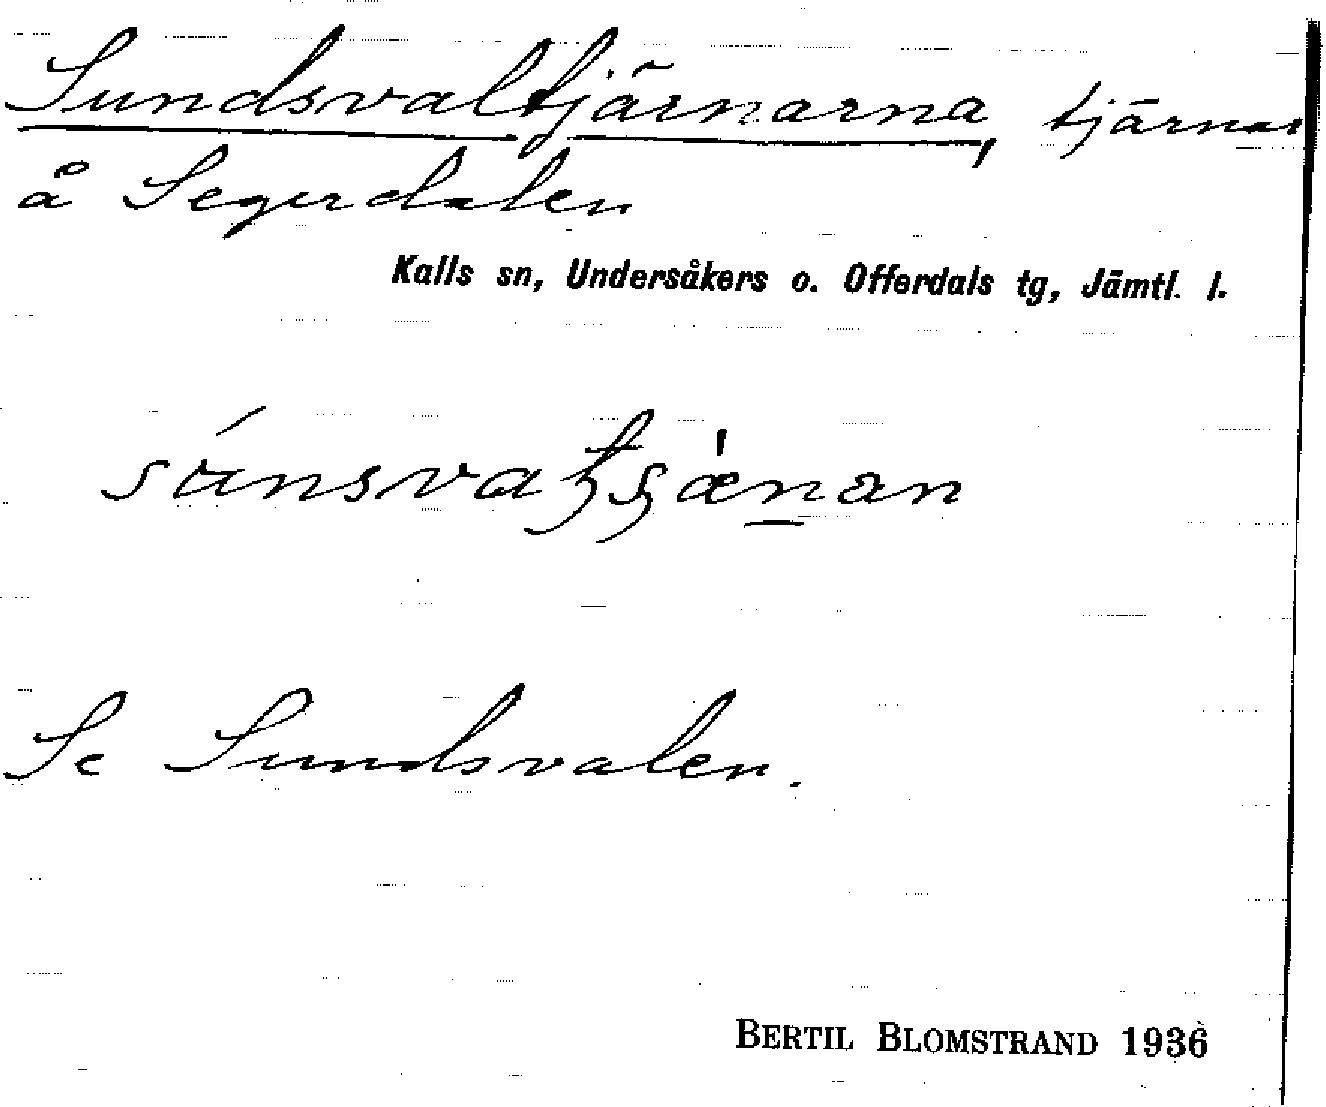 Sundsvaltjärnarna, tjärnar
å Segerdalen
Kalls sn, Undersåkers o. Offerdals tg, Jämtl. l.
Se Sundsvalen.
BERTIL BLOMSTRAND 1936